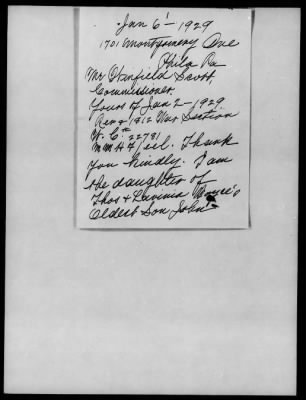 Jan 6 - 1929
1701 Montgomery Ave
Phila Pa
Mr Winfield Scott
Commissioner.
Yours of Jan 2 - 1929
Rev & 1812 War Section
W. C. 22781
Thank
you kindly. I am
the daughter of
Thos & Lavinia
Oldest Son John